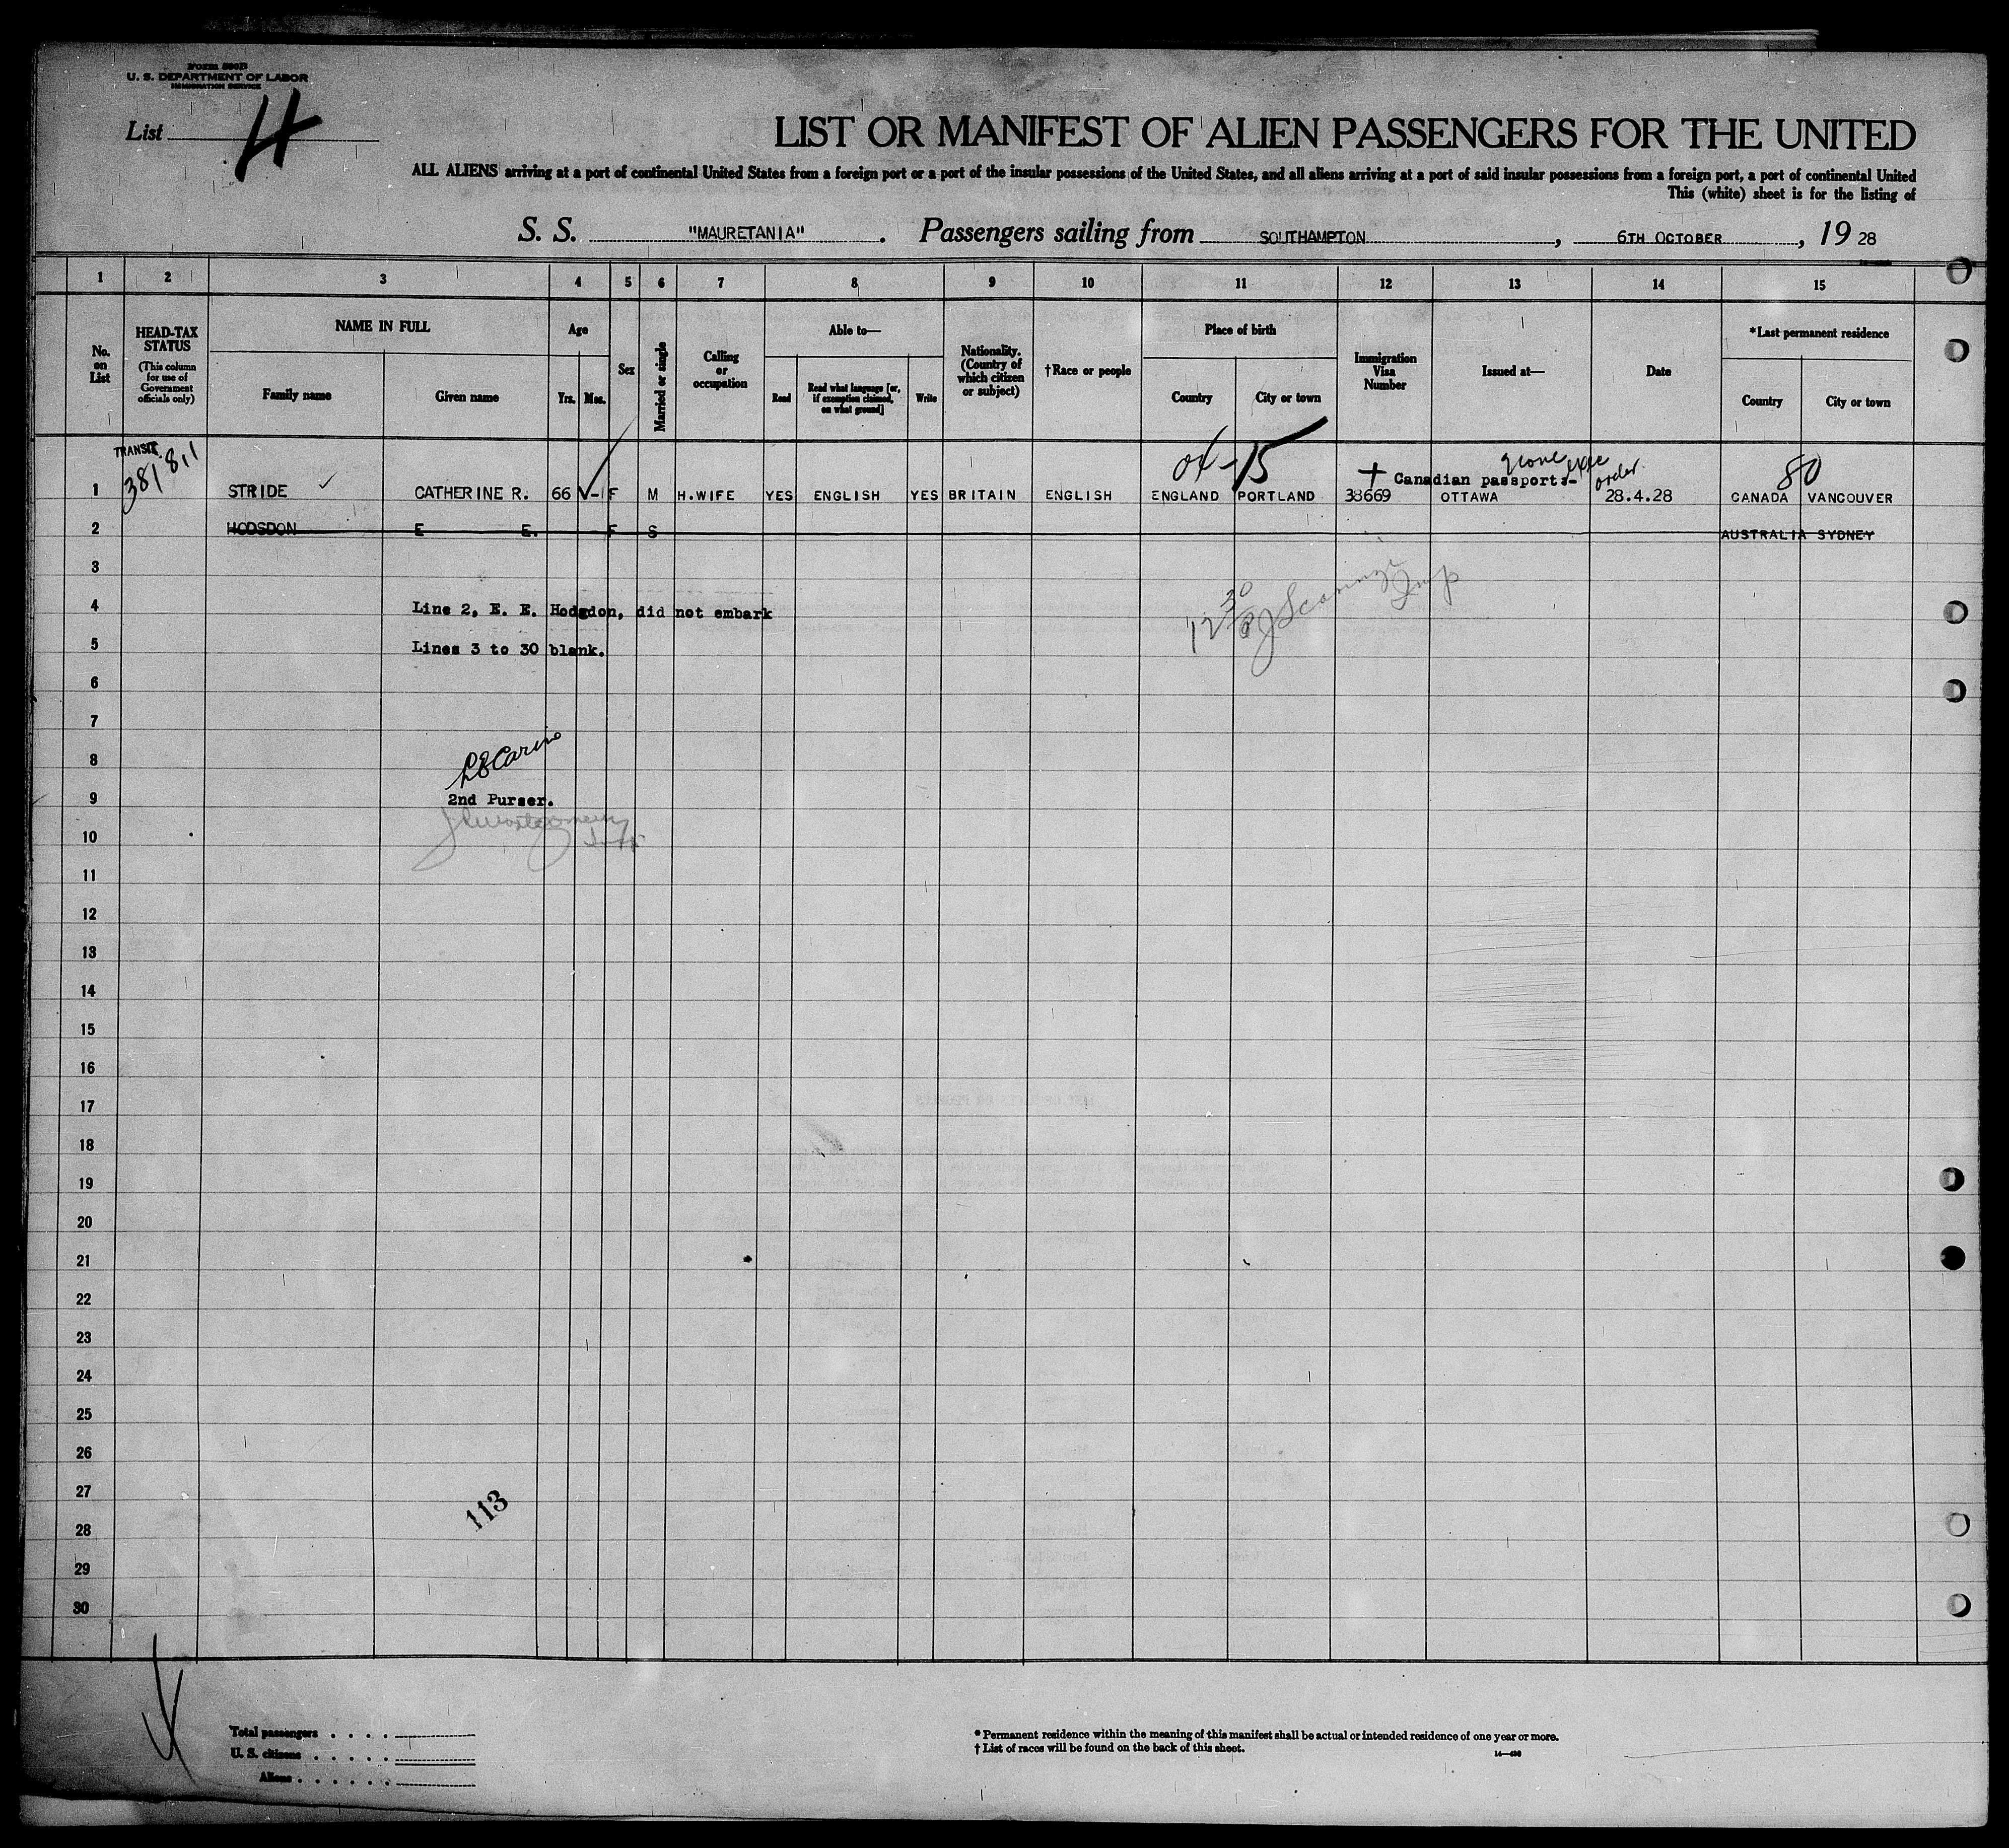 Form 500B
U. S. DEPARTMENT OF LABOR
IMMIGRATION SERVICE
List 4
LIST OR MANIFEST OF ALIEN PASSENGERS FOR THE UNITED
ALL ALIENS arriving at a port of continental United States from a foreign port or a port of the insular possessions of the United States, and all aliens arriving at a port of said insular possessions from a foreign port, a port of continental United
This (white) sheet is for the listing of
S. S. "MAURETANIA". Passengers sailing from SOUTHAMPTON, 6TH OCTOBER, 19 28
1 2 3 4 5 6 7 8 9 10 11 12 13 14 15
No. on List
HEAD-TAX STATUS
(This column for use of Government officials only)
NAME IN FULL
Family name
Given name
Age
Yrs. Mos.
Sex
Married or single
Calling or occupation
Able to—
Read
Read what language [or, if exemption claimed, on what ground]
Write
Nationality. (Country of which citizen or subject)
†Race or people
Place of birth
Country
City or town
Immigration Visa Number
Issued at—
Date
*Last permanent residence
Country
City or town
TRANSIT.
381811
04-15
Canadian passport:-
order
80
1 STRIDE CATHERINE R. 66 - F M H.WIFE YES ENGLISH YES BRITAIN ENGLISH ENGLAND PORTLAND 38669 OTTAWA 28.4.28 CANADA VANCOUVER
2 HODSDON E E. F S AUSTRALIA SYDNEY
3
4 Line 2, E. E. Hodgdon, did not embark
5 Lines 3 to 30 blank.
6
7
8
9 2nd Purser.
10
11
12
13
14
15
16
17
18
19
20
21
22
23
24
25
26
27
113
28
29
30
Total passengers . . . .
U. S. citizens . . . . .
Aliens . . . . . .
* Permanent residence within the meaning of this manifest shall be actual or intended residence of one year or more.
† List of races will be found on the back of this sheet.